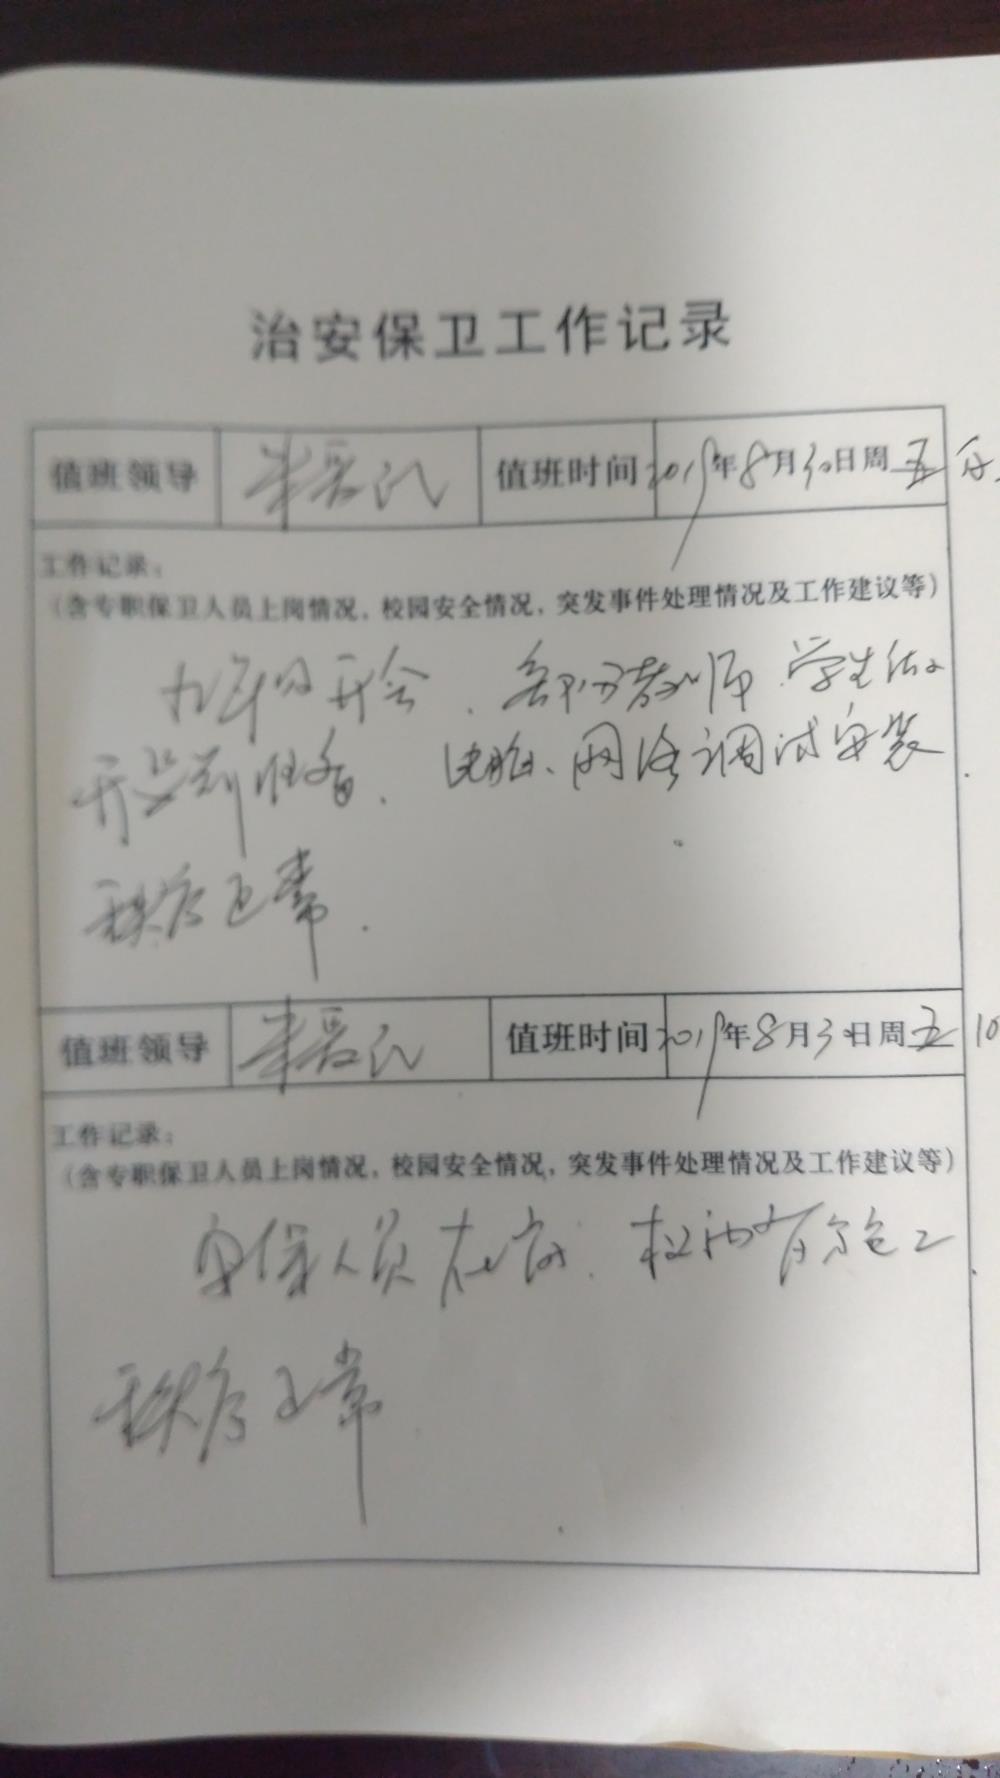 治安保卫工作记录
值班领导 值班时间 2019年8月30日周五
工作记录：
（含专职保卫人员上岗情况，校园安全情况，突发事件处理情况及工作建议等）
九年级开会、部分教师、学生
开 电脑、网络调试安装
秩序正常.
值班领导 值班时间 2019年8月30日周五 10
工作记录：
（含专职保卫人员上岗情况，校园安全情况，突发事件处理情况及工作建议等）
安保人员在岗. 校内有施工
秩序正常